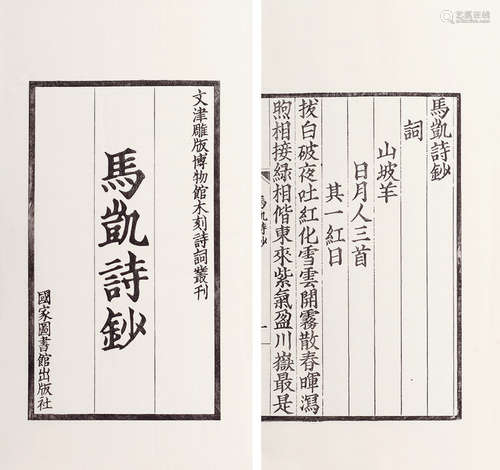 文津雕版博物館木刻詩詞叢刊
馬凱詩鈔
國家圖書館出版社
馬凱詩鈔
詞
山坡羊
日月人三首
其一紅日
拔白破夜吐紅化雪雲開霧散春暉瀉
煦相接綠相偕東來紫氣盈川嶽最是
馬凱詩鈔
一